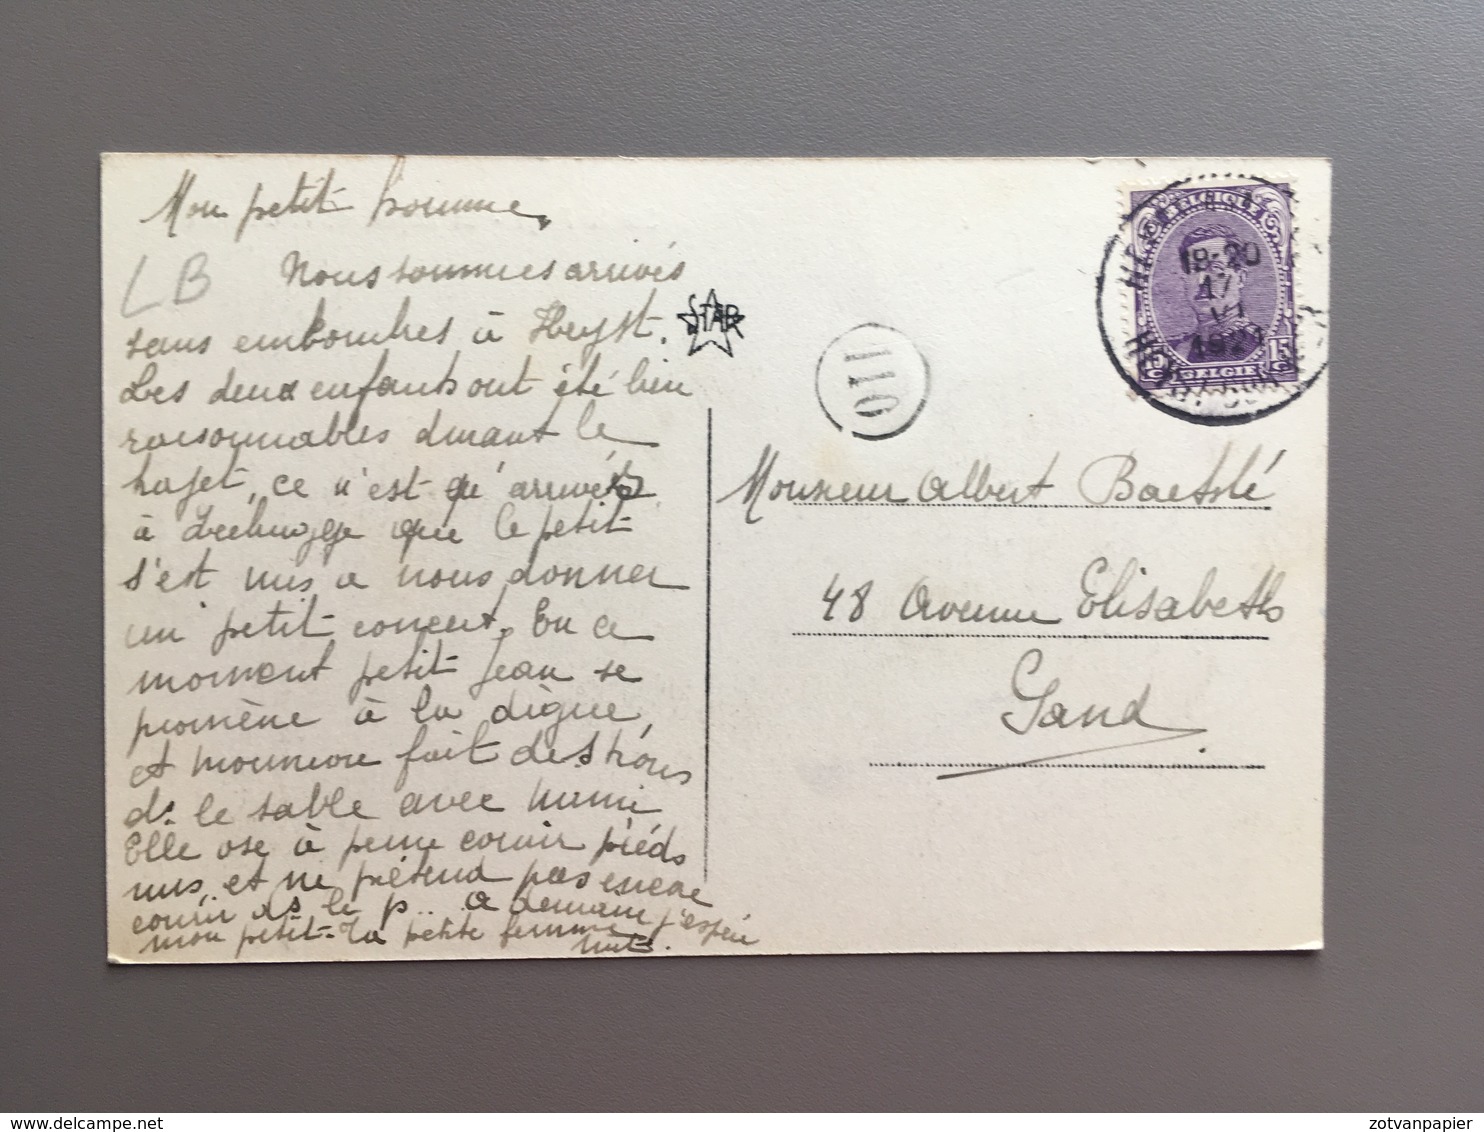 Mon petit homme,
LB
Nous sommes arrivés
sans encombres à Heyst.
Les deux enfants ont été bien
raisonnables durant le
trajet, ce n'est qu'arrivés
à que le petit
s'est mis à nous donner
un petit concert. En ce
moment petit Jean se
promène à la digue,
et fait des trous
ds le sable avec
Elle ose à peine courir pieds
nus, et ne prétend pas encore
courir ds le p... a demain j'espère
mon petit. Ta petite femme
STAR
110
BELGIQUE
18-20
17
VI
1921
15
C
BELGIE
15
C
Monsieur Albert Baetslé
48 Avenue Elisabeth
Gand
zotvanpapier